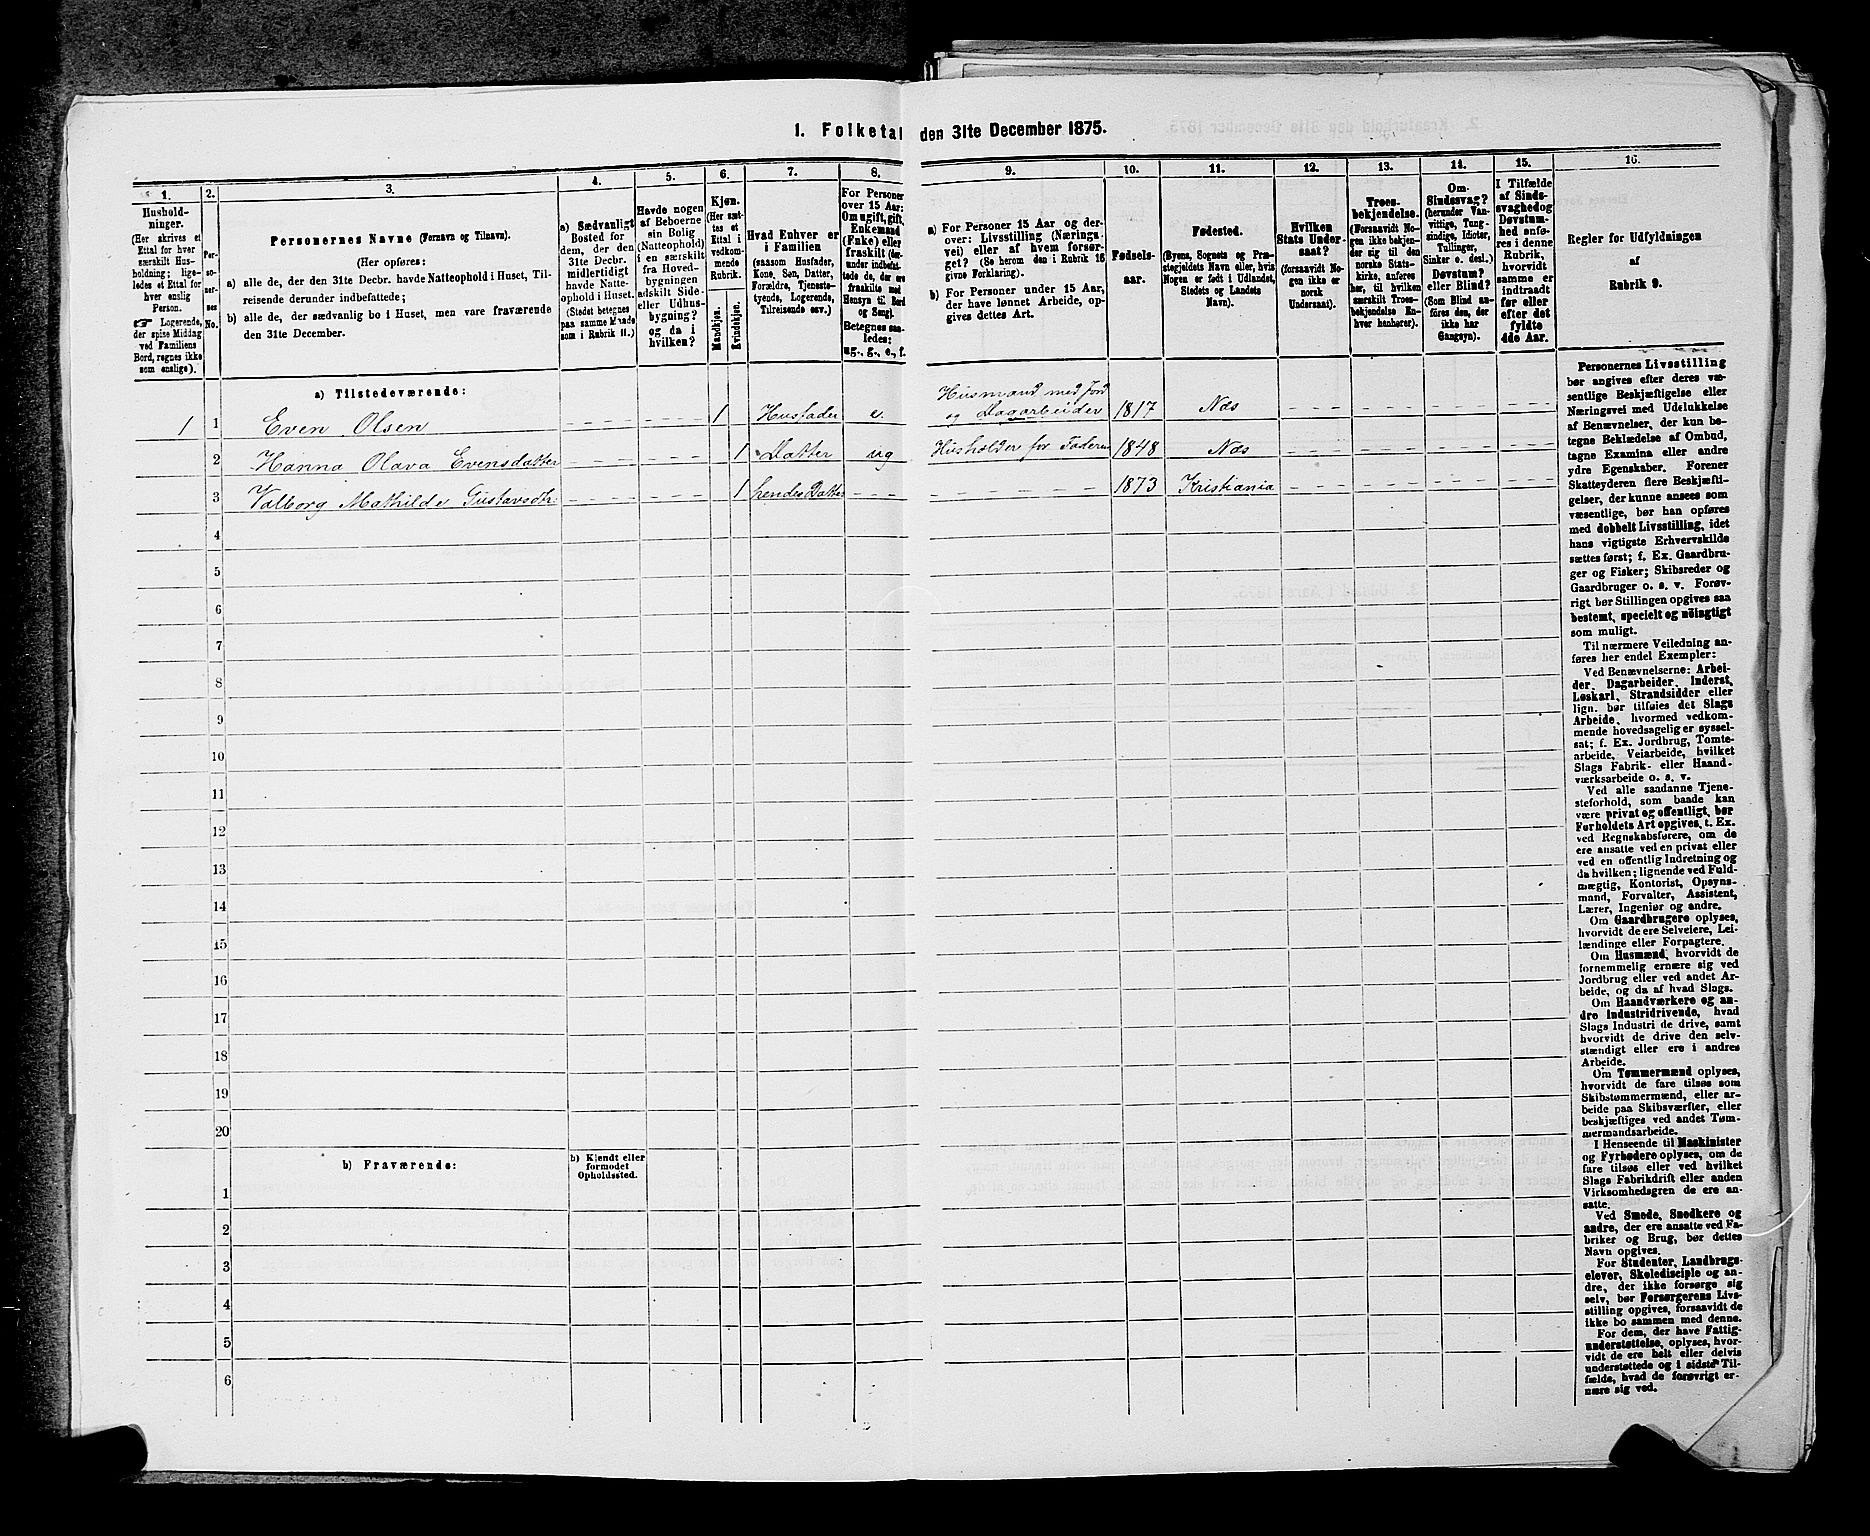 1. Folketal den 31te December 1875.
1. 2. 3. 4. 5. 6. 7. 8. 9. 10. 11. 12. 13. 14. 15. 16.
Hushold-
ninger.
(Her skrives et
Ettal for hver
særskilt Hus-
holdning; lige-
ledes et Ettal for
hver enslig
Person.
☞ Logerende,
der spise Middag
ved Familiens
Bord, regnes ikke
som enslige).
Per-
so-
ner-
nes
No.
Personernes Navne (Fornavn og Tilnavn).
(Her opføres:
a) alle de, der den 31te Decbr. havde Natteophold i Huset, Til-
reisende derunder indbefattede;
b) alle de, der sædvanlig bo i Huset, men vare fraværende
den 31te December.
a) Sædvanligt
Bosted for
dem, der den
31te Decbr.
midlertidigt
havde Natte-
ophold i Huset.
(Stedet betegnes
paa samme Maade
som i Rubrik 11.)
Havde nogen
af Beboerne
sin Bolig
(Natteophold)
i en særskilt
fra Hoved-
bygningen
adskilt Side-
eller Udhus-
bygning?
og da i
hvilken?
Kjøn.
(Her sæt-
tes et
Ettal i
vedkom-
mende
Rubrik.
Mandkjøn.
Kvindekjøn.
Hvad Enhver er
i Familien
(saasom Husfader,
Kone, Søn, Datter,
Forældre, Tjeneste-
tyende, Logerende,
Tilreisende osv.)
For Personer
over 15 Aar:
Om ugift, gift,
Enkemand
(Enke) eller
fraskilt (der-
under indbefat-
tede de, der ere
fraskilte med
Hensyn til Bord
og Seng).
Betegnes saa-
ledes:
ug., g., e., f.
a) For Personer 15 Aar og der-
over: Livsstilling (Nærings-
vei) eller af hvem forsør-
get? (Se herom den i Rubrik 16
givne Forklaring).
b) For Personer under 15 Aar,
der have lønnet Arbeide, op-
gives dettes Art.
Fødsels-
aar.
Fødested.
(Byens, Sognets og Præ-
stegjeldets Navn eller, hvis
Nogen er født i Udlandet,
Stedets og Landets
Navn).
Hvilken
Stats Under-
saat?
(forsaavidt No-
gen ikke er
norsk
Undersaat).
Troes-
bekjendelse.
(Forsaavidt No-
gen ikke bekjen-
der sig til den
norske Stats-
kirke, anføres
her, til hvilken
særskilt Troes-
bekjendelse En-
hver henhører).
Om
Sindssvag?
(herunder Van-
vittige, Tung-
sindige, Idioter,
Tullinger,
Sinker o. desl.)
Døvstum?
eller Blind?
(Som Blind an-
føres den, der
ikke har
Gangsyn).
I Tilfælde
af Sinds-
svaghed og
Døvstum-
hed anfø-
res i denne
Rubrik,
hvorvidt
samme er
indtraadt
før eller
efter det
fyldte
4de Aar.
Regler for Udfyldningen
af
Rubrik 9.
a) Tilstedeværende:
1 1 Even Olsen 1 Husfader e. Husmand med Jord og Dagarbeider 1817 Næs
2 Hanna Olava Evensdatter 1 Datter ug Husholder for Faderen 1848 Næs
3 Valborg Mathilde Gustavsdtr: 1 hendes Datter 1873 Kristiania
4
5
6
7
8
9
10
11
12
13
14
15
16
17
18
19
20
b) Fraværende:
b) Kjendt eller
formodet
Opholdssted.
1
2
3
4
5
6
Personernes Livsstilling
bør angives efter deres væ-
sentlige Beskjæftigelse eller
Næringsvei med Udelukkelse
af Benævnelser, der kun be-
tegne Beklædelse af Ombud,
tagne Examina eller andre
ydre Egenskaber. Forener
Skatteyderen flere Beskjæfti-
gelser, der kunne ansees som
væsentlige, bør han opføres
med dobbelt Livsstilling, idet
hans vigtigste Erhvervskilde
sættes først; f. Ex. Gaardbru-
ger og Fisker; Skibsreder og
Gaardbruger o. s. v. Forøv-
rigt bør Stillingen opgives saa
bestemt, specielt og nöiagtigt
som muligt.
Til nærmere Veiledning an-
føres her endel Exempler:
Ved Benævnelserne: Arbei-
der, Dagarbeider, Inderst,
Løskarl, Strandsidder eller
lign. bør tilføies det Slags
Arbeide, hvormed vedkom-
mende hovedsagelig er syssel-
sat; f. Ex. Jordbrug, Tomte-
arbeide, Veiarbeide, hvilket
Slags Fabrik- eller Haand-
værksarbeide o. s. v.
Ved alle saadanne Tjene-
steforhold, som baade kan
være privat og offentligt, bør
Forholdets Art opgives, t. Ex.
ved Regnskabsførere, om de
ere ansatte ved en privat eller
ved en offentlig Indretning og
da hvilken; lignende ved Fuld-
mægtig, Kontorist, Opsyns-
mand, Forvalter, Assistent,
Lærer, Ingeniør og andre.
Om Gaardbrugere oplyses,
hvorvidt de ere Selveiere, Lei-
lændinge eller Forpagtere.
Om Husmænd, hvorvidt de
fornemmelig ernære sig ved
Jordbrug eller ved andet Ar-
beide, og da af hvad Slags.
Om Haandværkere og an-
dre Industridrivende, hvad
Slags Industri de drive, samt
hvorvidt de drive den selv-
stændigt eller ere i andres
Arbeide.
Om Tømmermænd oplyses,
hvorvidt de fare tilsøs som
Skibstømmermænd, eller ar-
beide paa Skibsværfter, eller
beskjæftiges ved andet Tøm-
mermandsarbeide.
I Henseende til Maskinister
og Fyrbødere oplyses, om de
fare tilsøs eller ved hvilket
Slags Fabrikdrift eller anden
Virksomhedsgren de ere an-
satte.
Ved Smede, Snedkere og
andre, der ere ansatte ved Fa-
briker og Brug, bør dettes
Navn opgives.
For Studenter, Landbrugs-
elever, Skoledisciple og an-
dre, der ikke forsørge sig
selv, bør Forsørgerens Livs-
stilling opgives, forsaavidt de
ikke bo sammen med denne.
For dem, der have Fattig-
understøttelse, oplyses, hvor-
vidt de ere helt eller delvis
understøttede og i sidste Til-
fælde, hvad de forøvrigt er-
nære sig ved.